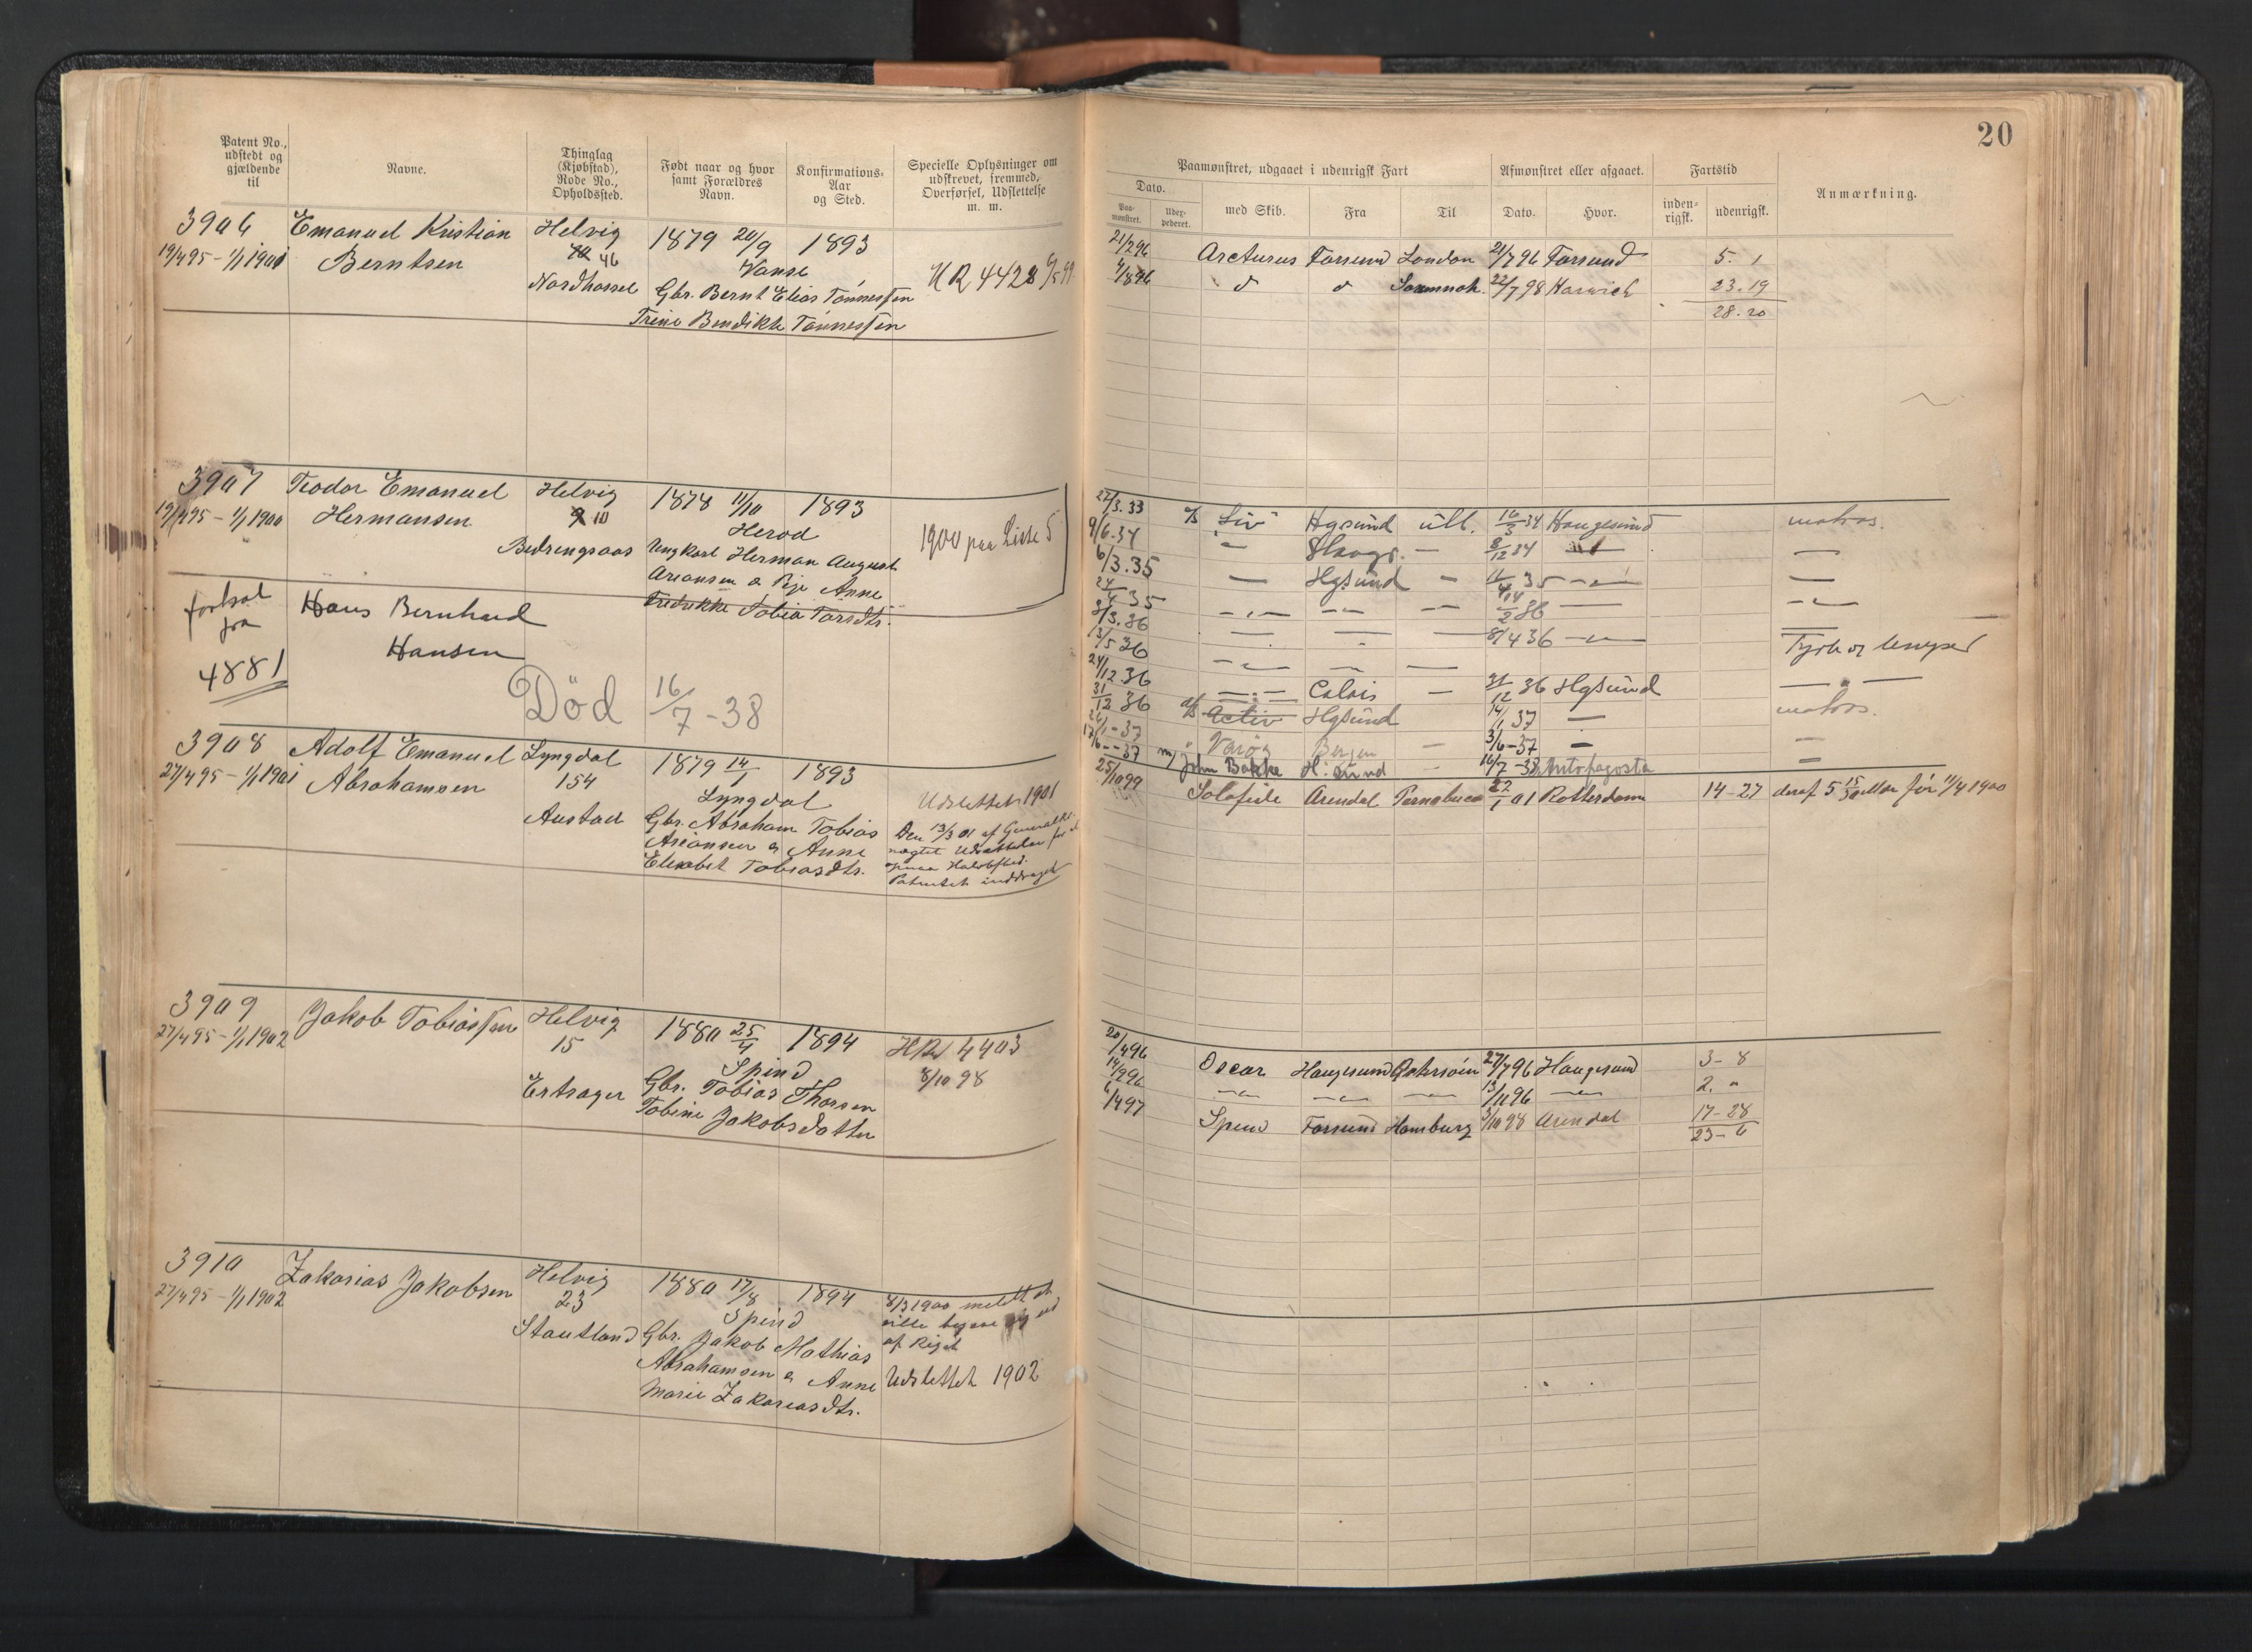 20
Patent No.,
udstedt og
gjældende
til
Navne.
Thinglag
(Kjøbstad),
Rode No.,
Opholdssted.
Født naar og hvor
samt Forældres
Navn.
Konfirmations-
Aar
og Sted.
Specielle Oplysninger om
udskrevet, fremmed,
Overførsel, Udslettelse
m. m.
Paamønstret, udgaaet i udenrigsk Fart
Afmønstret eller afgaaet.
Fartstid
Anmærkning.
Dato.
Paa-
mønstret.
med Skib.
Fra
Til
Dato.
Hvor.
inden-
rigsk.
udenrigsk.
3906 Emanuel Kristian Helvig 1879 20/9 1893
19/4 95 - 1/1 1901 Berntsen 46 Vanse
Nordhassel Gbr. Bernt Elias Tønnessen
Trine Bendikte Tønnessen
HR 4428
21/2 96 Arcturus Farsund London 21/7 96 Farsund 5. 1
4/8 96 d d 22/7 98 Harwich 23.19
28.20
3907 Teodor Emanuel Helvig 1878 11/10 1893
19/4 95 - 1/1 1900 Hermansen 9 10 Herod
Ungkarl Herman August
Arionsen & Pige Anne
Fredrikke Tobia Tarsdtr.
1900 paa Liste 5
fortsat
fra
4881
Hans Bernhard
Hansen
Død 16/7 - 38
22/3.33 "Liv" Hgsund utl. 16/3 34 Haugesund matros.
9/6.34 — — 8/12 34 — —
6/3.35 — Hgsund — 35 — —
24/4 35 — — — 36 — —
3/3.36 — — — 8/4 36 —
13/5 36 — — —
24/12 36 — Calais — 31/12 36 Hgsund —
31/12 36 Activ Hgsund 14/1 37 — matros.
Varøy Bergen — 3/6-37 — —
John Bakke H:sund — 16/7 -38 Antofagosta —
3908 Adolf Emanuel Lyngdal 1879 14/1 1893
27/4 95 - 1/1 1901 Abrahamsen 154 Lyngdal
Austad Gbr. Abraham Tobias
Arionsen & Anne
Elisabet Tobiasdtr.
Udslettet 1901
Den 13/3 01 af Generalks.
nægtet Udsættelse for et
Patentet inddraget
25/10 99 Solafide Arendal Pernabuco 22/1 01 Rotterdam 14-27 deraf 5 15/30 før 11/4 1900
3909 Jakob Tobiassen Helvig 1880 25/4 1894
27/4 95 - 1/1 1902 15 Spind
Ertsager Gbr. Tobias Thorsen
Tobine Jakobsdatter
HR 4403
8/10 98
20/4 96 Oscar Haugesund 27/7 96 Haugesund 3-8
14/9 96 — — — 13/11 96 — 2. "
6/4 97 Spind Farsund Hamburg 3/10 98 Arendal 17-28
23-6
3910 Zakarias Jakobsen Helvig 1880 17/8 1894
27/4 95 - 1/1 1902 23 Spind
Stautland Gbr. Jakob Mathias
Abrahamsen & Anne
Marie Zakariasdtr.
8/3 1900 meldt at
ville
af Riget
Udslettet 1902